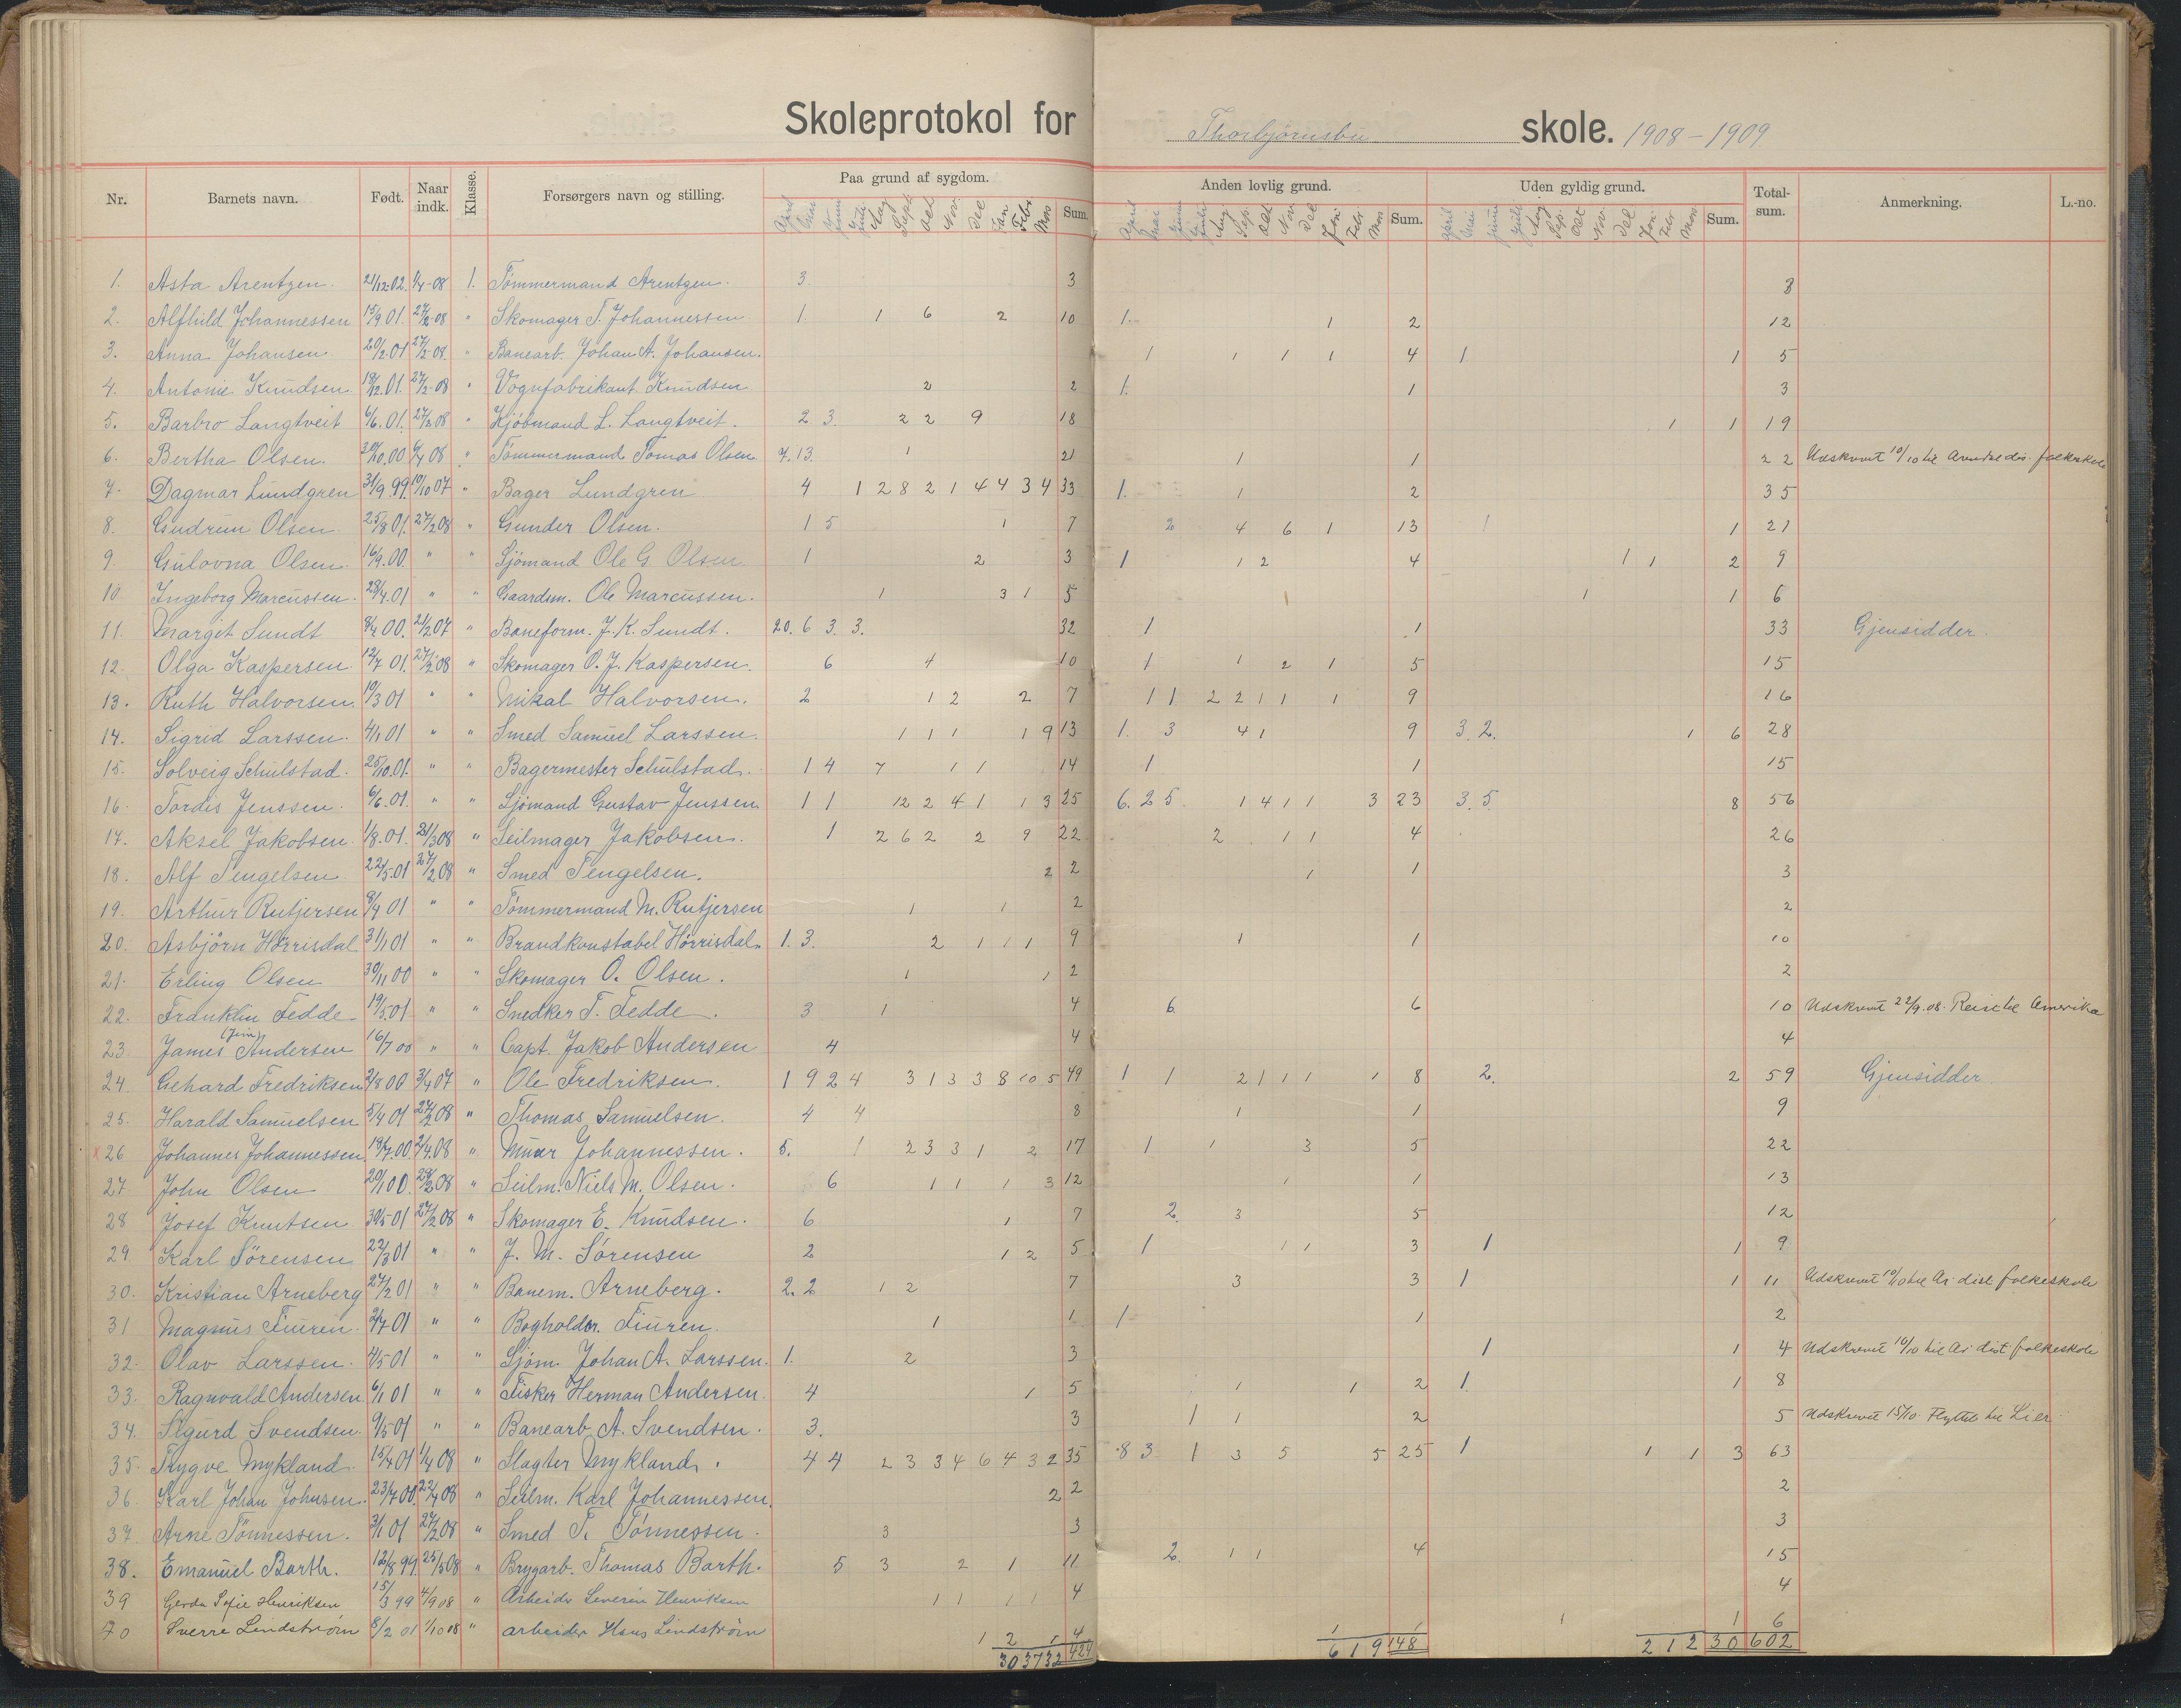 Skoleprotokol for Thorbjørnsbu skole. 1908-1909
Nr. Barnets navn. Født. Naar indk. Klasse. Forsørgers navn og stilling. Paa grund af sygdom. Sum. Anden lovlig grund. Sum. Uden gyldig grund. Sum. Total-sum. Anmerkning. L.-no.
April Mai Juni Juli Aug Sept Okt Nov Del Jan Febr Mars April Mai Juni Juli Aug Sep. Okt Nov Del Jan Febr Mars April Mai Juni Juli Aug Sep. Okt Nov Del Jan Febr Mars
1. Asta Arentzen. 21/12.02. 1/4-08 1. Tømmermand Arentzen. 3. 3 3
2. Alfhild Johannessen 15/9 01. 27/2-08 " Skomager T. Johannessen 1. 1 6 2 10 1. 1 2 12
3. Anna Johansen. 20/2.01 27/2-08. " Banearb. Johan A. Johansen. 1 1 1 1 4 1 1 5
4. Antonie Knudsen 18/12.01. 27/2-08 " Vognfabrikant Knudsen 2 2 1. 1 3
5. Barbro Langtveit 6/6.01. 27/2 08 " Kjøbmand L. Langtveit. 2 3. 2 2 9 18 1 1 19
6. Bertha Olsen. 30/10.00 6/4 08 " Tømmermand Tomas Olsen 7.13. 1 21 1 1 22 Udskrevet 10/10 til Arendal dis. folkeskole
7. Dagmar Lundgren 31/9.99. 10/10 07 " Bager Lundgren 4 1 2 8 2 1 4 4 3 4 33 1. 1 2 35
8. Gudrun Olsen. 25/8 01. 27/2 08 " Gunder Olsen. 1 5 1 7 2 4 6 1 13 1 1 21
9. Gulovna Olsen. 16/9.00. " " Sjømand Ole G. Olsen. 1 2 3 1 1 2 4 1 1 2 9
10. Ingeborg Marcussen. 28/4.01 " " Gaardsm. Ole Marcussen. 1 3 1 5 1 1 6
11. Margit Sundt 8/4 00. 21/2 07 " Baneform. J. K. Sundt. 20. 6 3. 3. 32 1 1 33 Gjensidder.
12. Olga Kaspersen. 12/7 01. 27/2 08 " Skomager O. J. Kaspersen. 6 4 10 1 1 2 1 5 15
13. Ruth Halvorsen. 10/3 01 " " Mikal Halvorsen. 2 1 2 2 7 1 1 2 2 1 1 1 9 16
14. Sigrid Larssen. 4/1 01 " " Smed Samuel Larssen. 1 1 1 1 9 13 1. 3 4 1 9 3. 2. 1 6 28
15. Solveig Schulstad. 25/10.01. " " Bagermester Schulstad. 1 4 7 1 1 14 1 1 15
16. Tordis Jenssen. 6/6.01. " " Sjømand Gustav Jenssen. 1 1 12 2 4 1 1 3 25 6. 2 5. 1 4 1 1 3 23 3. 5. 8 56
17. Aksel Jakobsen. 1/8.01. 21/3 08 " Seilmager Jakobsen. 1 2 6 2 2 9 22 2 1 1 4 26
18. Alf Tengelsen 22/5-01 27/2 08 " Smed Tengelsen. 2 2 1 1 3
19. Arthur Rutjersen 8/4 01 " " Tømmermand M. Rutjersen 1 1 2 2
20. Asbjørn Hørrisdal 31/1 01 " " Brandkonstabel Hørrisdal. 1. 3. 2 1 1 1 9 1 1 10
21. Erling Olsen 30/11 00 " " Skomager O. Olsen. 1 1 2 2
22. Franklin Fedde 19/5 01 " " Snedker T. Fedde. 3 1 4 6. 6 10 Udskrevet 22/9.08. Reise til Amerika
23. James Andersen 16/7 00 " " Capt. Jakob Andersen 4 4 4
24. Gehard Fredriksen 2/8 00 3/4 07 " Ole Fredriksen. 1 9 2 4 3 1 3 3 8 10 5 49 1 1 2 1 1 1 1 8 2. 2 59 Gjensidder.
25. Harald Samuelsen 5/4 01 27/2 08 " Thomas Samuelsen. 4 4 8 1 1 9
26 Johannes Johannessen 19/7.00. 2/4.08 " Murer Johannessen. 5. 1 2 3 3 1 2 17 1 1 3 5 22
27. John Olsen 20/1 00. 29/2 08 " Seilm. Niels M. Olsen. 6 1 1 1 3 12 1 1 13
28 Josef Knutsen 30/5-01 27/2 08 " Skomager E. Knudsen. 6 1 7 2. 3 5 12
29. Karl Sørensen 22/3 01 " " J. M. Sørensen 2 1 2 5 1 1 1 3 1 1 9
30. Kristian Arneberg 27/2 01 " " Banem. Arneberg. 2. 2 1 2 7 3 3 1 1 11 Udskrevet 10/10 til Ar. dist folkeskole
31 Magnus Fiuren. 2/7 01 " " Bogholder. Fiuren. 1 1 1 1 2
32. Olav Larssen. 4/5 01 " " Sjøm. Johan A. Larssen. 1. 2 3 1 1 4 Udskrevet 10/10 til Ar. dist. folkeskole
33. Ragnvald Andersen 6/1 01 " " Fisker Herman Andersen. 4 1 5 1 1 2 1. 1 8
34. Sigurd Svendsen. 9/5 01 " " Banearb. A. Svendsen. 3. 3 1 1 2 5 Udskrevet 15/10. Flyttet til Lier
35. Trygve Mykland. 15/4 01 1/4 08 " Slagter Mykland. 4 4 2 3 3 4 6 4 3 2 35 8 3 1 3 5 5 25 1 1 1 3 63
36. Karl Johan Johnsen. 23/7 00. 22/4 08 " Seilm. Karl Johannessen. 2 2 2
37. Arne Tønnessen. 3/1 01 27/2 08 " Smed T. Tønnessen. 3 3 3
38. Emanuel Barth. 12/8 99. 25/5 08 " Brygarb. Thomas Barth. 5 3 2 1 11 2. 1 1 4 15
39 Gerda Sofie Henriksen 15/3 99 4/9 08 " Arbeider Severin Henriksen 1 1 1 1 4 4
40 Sverre Lindstrøm 8/2 01 1/10 08 " arbeider Hans Lindstrøm 1 2 1 4 1 1 1 1 6
30 37 32 424 6 1 9 148 2 1 2 30 602